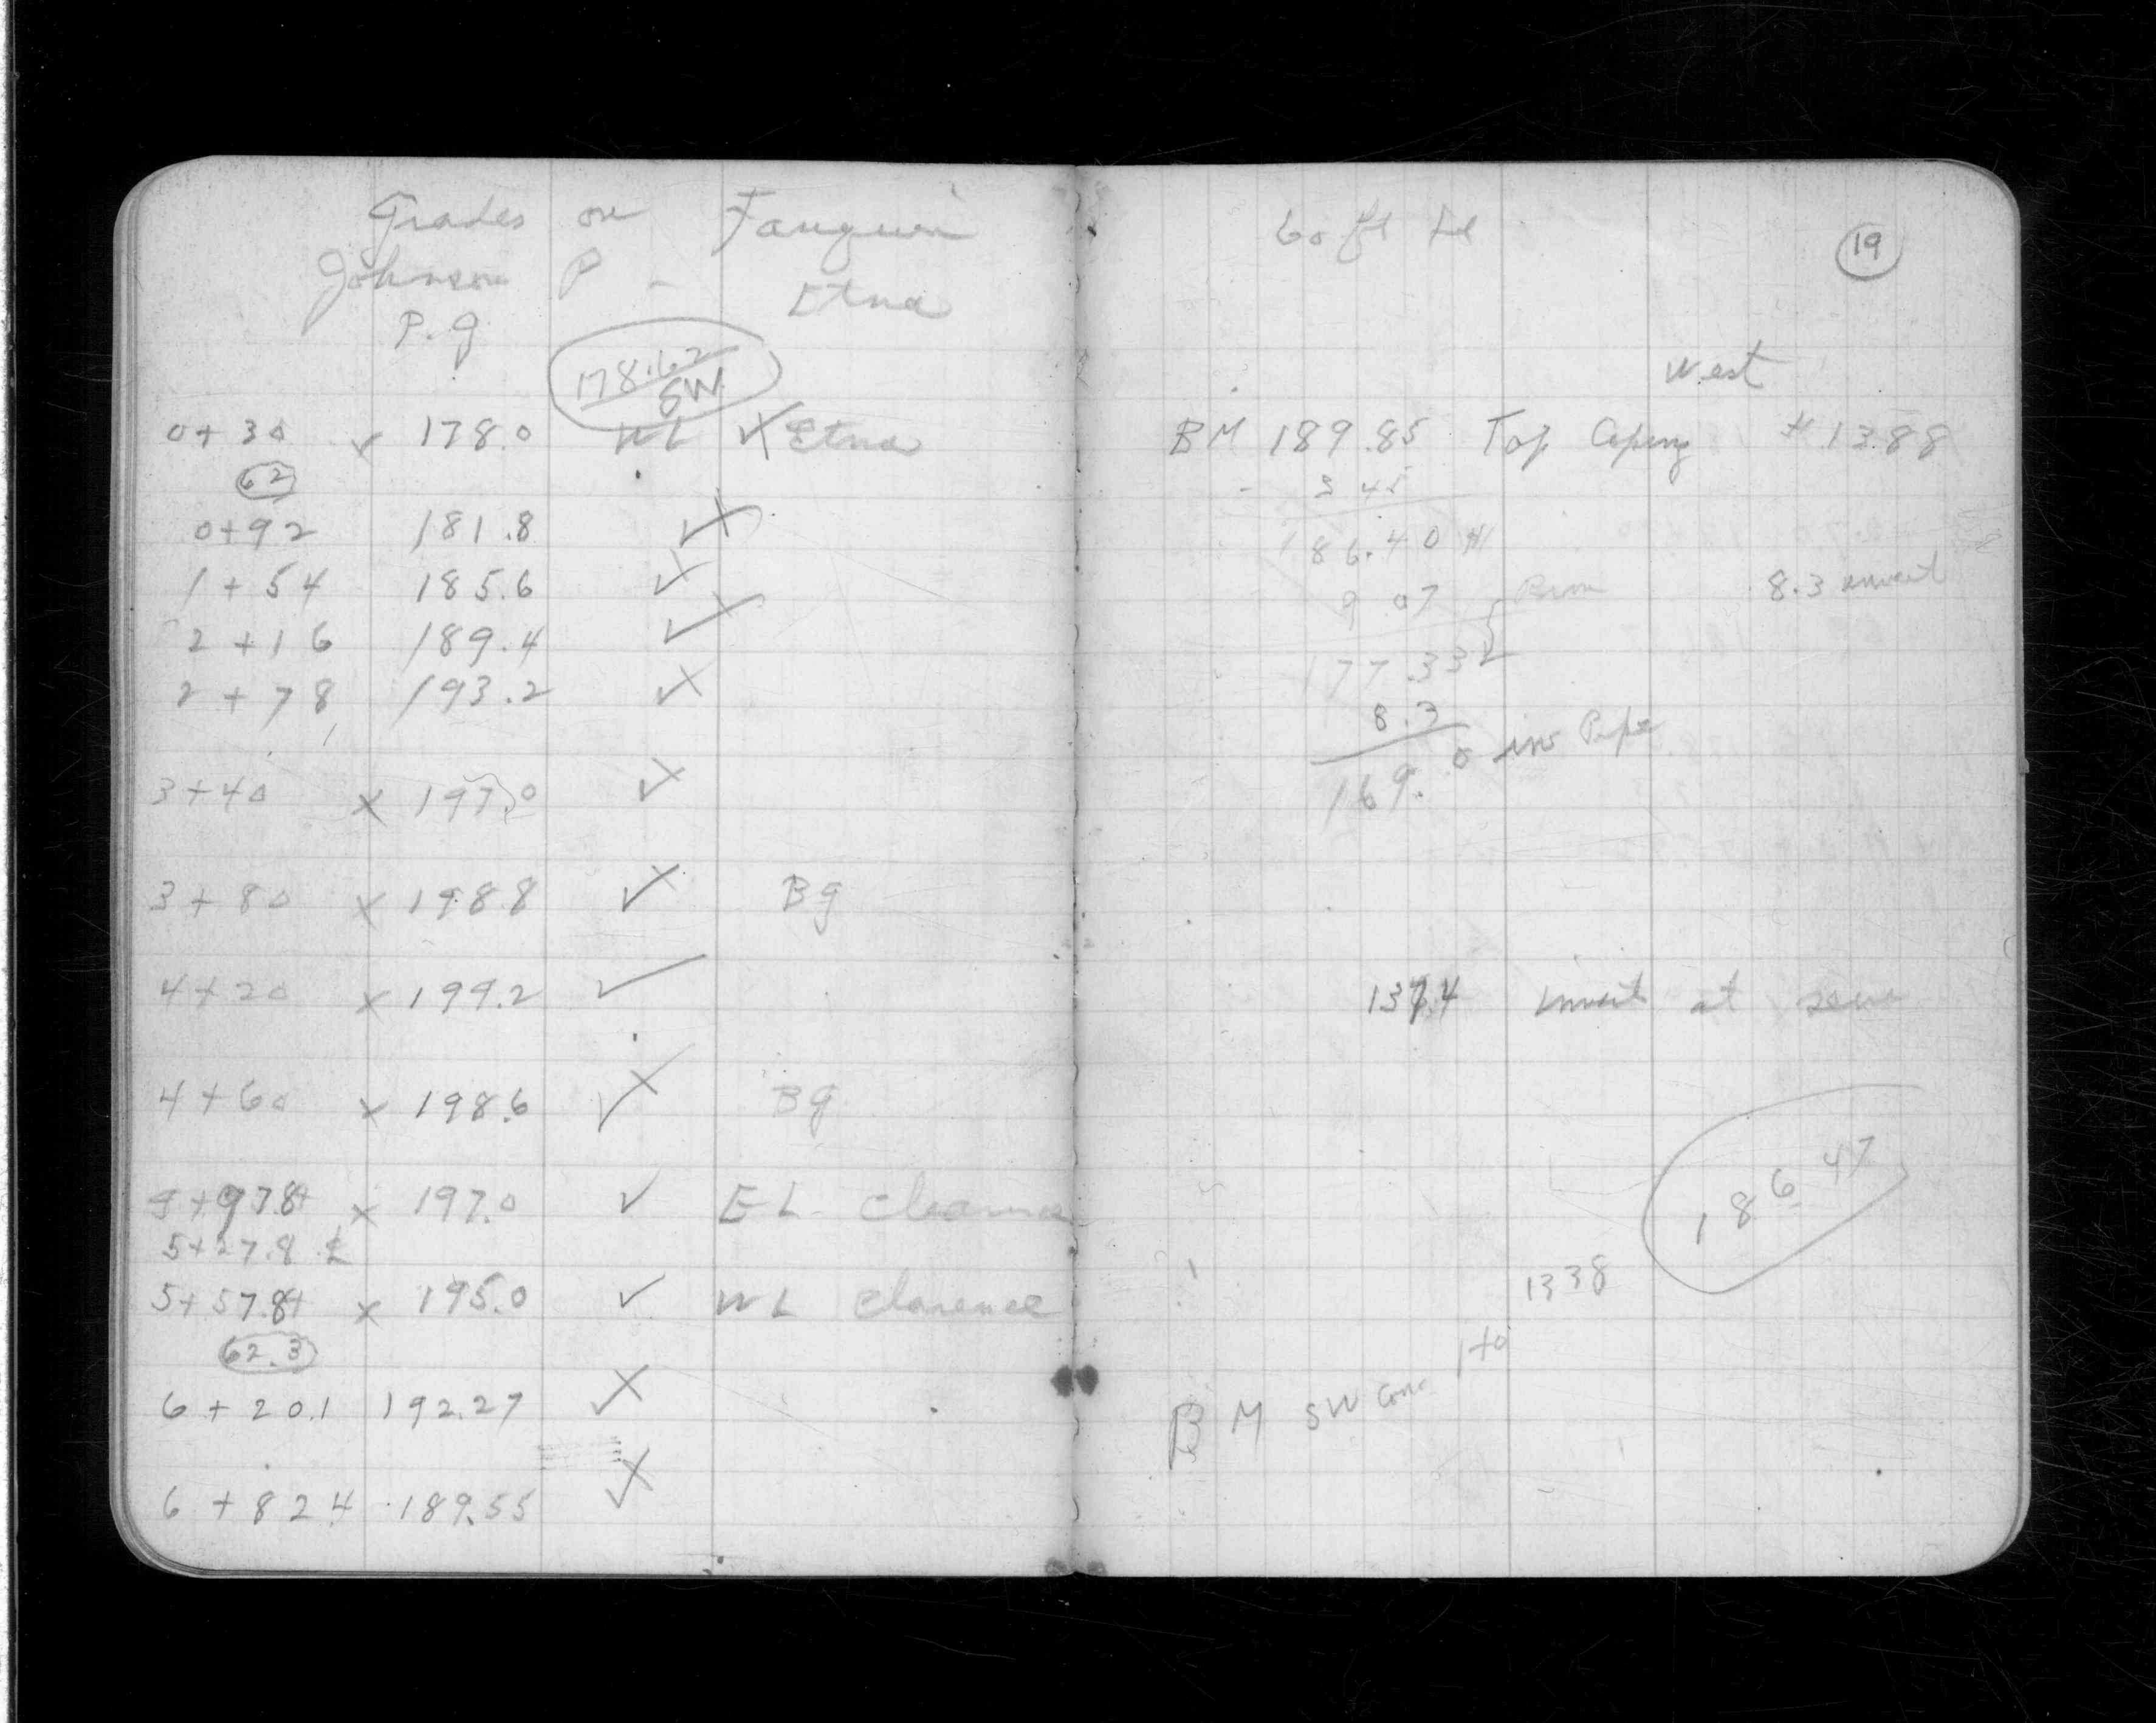 Grades on Fauquier
Johnson P - Etna
P.g
178.62
SW
0+30 ✓ 178.0 WL X Etna
62
0+92 181.8 ✓
1+54 185.6 ✓
2+16 189.4 ✓
2+78 193.2 ✓
3+40 x 197.0 ✓
3+80 x 198.8 ✓ Bg
4+20 x 199.2 ✓
4+60 x 198.6 ✓ Bg
4+97.8+ x 197.0 ✓ EL Clarence
5+27.8 ℄
5+57.8+ x 195.0 ✓ WL Clarence
62.3
6+20.1 192.27 X
6+82.4 189.55 X
60 ft
19
West
BM 189.85 Top Coping # 1388
- 3 45
186.40 HI
9 07 Rim 8.3 invert
177.33
8.3
169.0 inv Pipe
137.4 invert at
186.47
1338
BM SW Cor